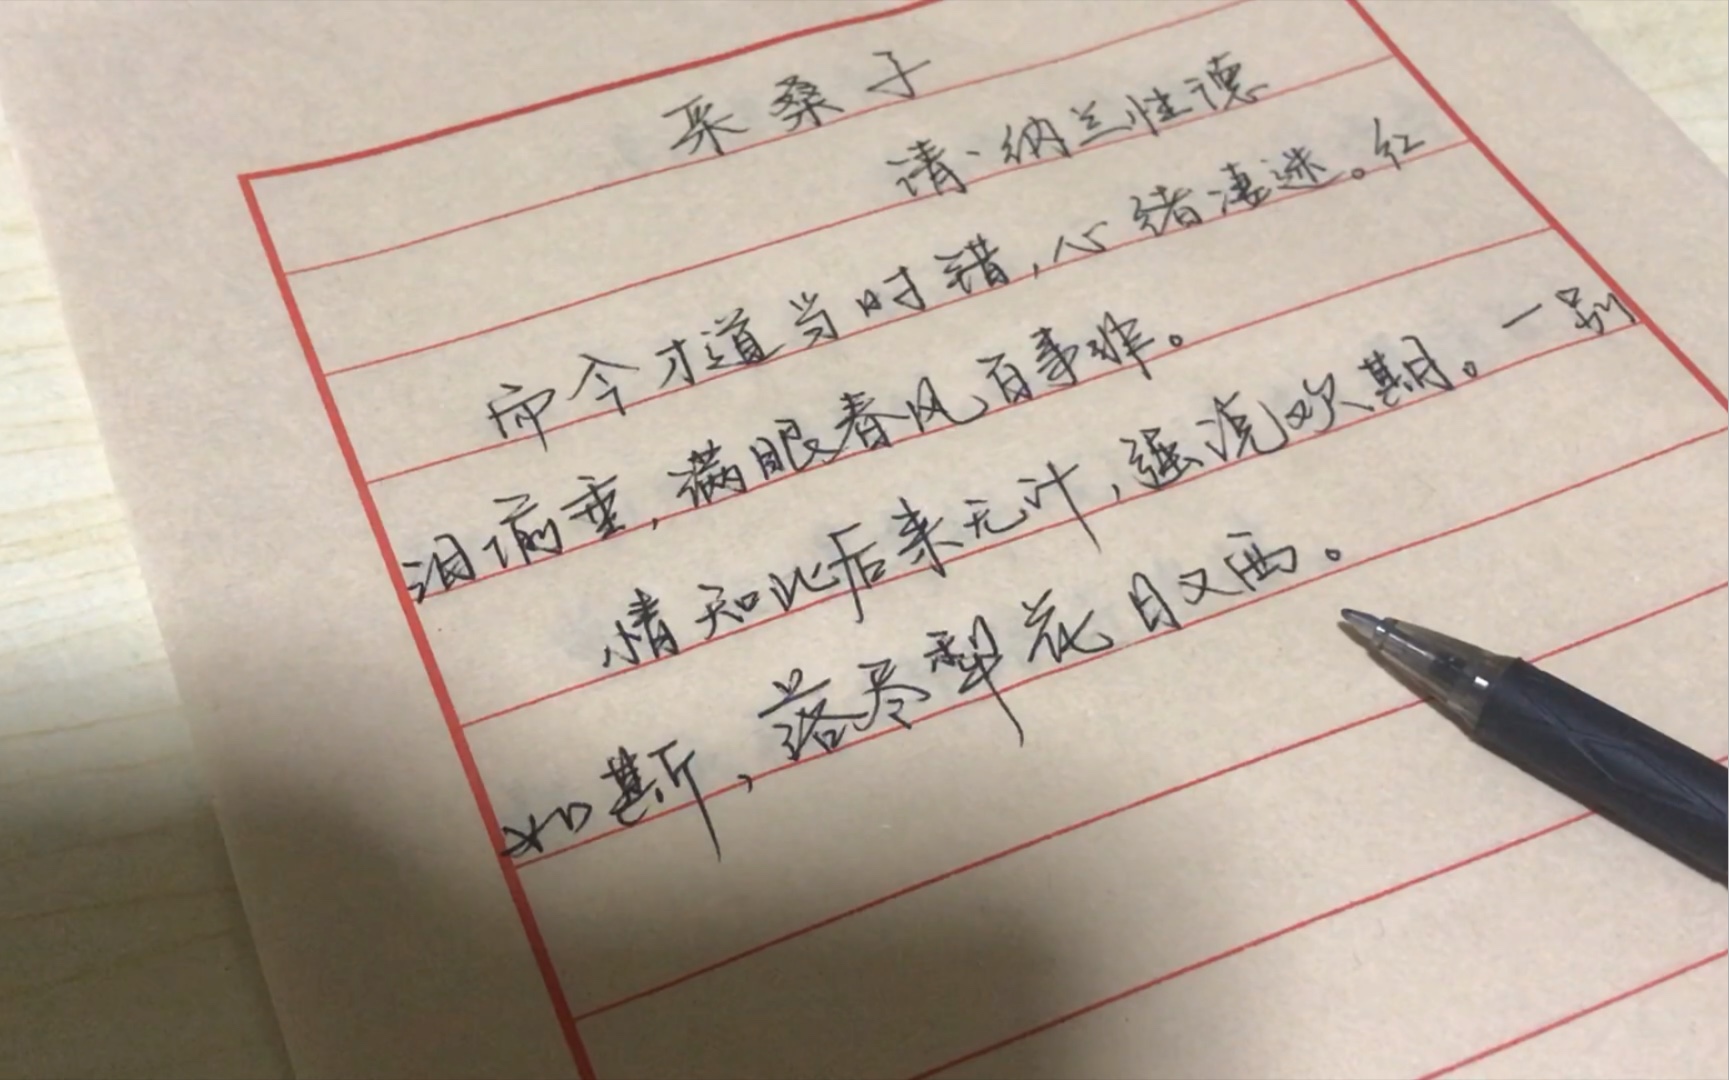 采桑子
清、纳兰性德
而今才道当时错,心绪凄迷。红
泪偷垂,满眼春风百事非。
情知此后来无计,强说欢期。一别
如斯,落尽犁花月又西。